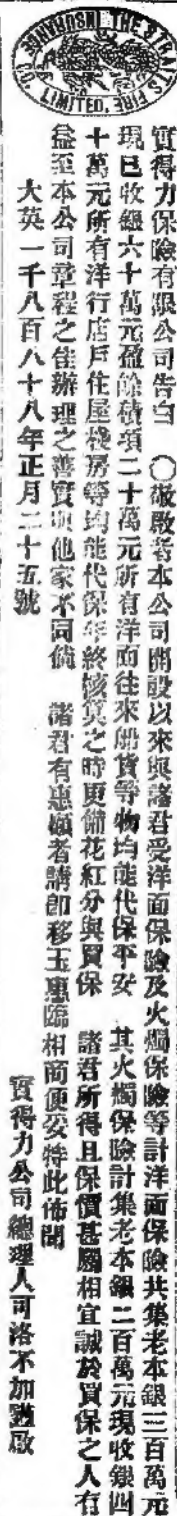 THE STRAITS FIRE INSURANCE CO LIMITED.
實得力保險有限公司告白　○敬啟者本公司開設以來與諸君受洋面保險及火燭保險等計洋面保險共集老本銀三百萬元
現已收銀六十萬元盈餘積項二十萬元所有洋面往來船貨等物均能代保平安　其火燭保險計集老本銀二百萬元現收銀四
十萬元所有洋行店戶住屋棧房等均能代保年終核算之時更備花紅分與買保　諸君所得且保價甚屬相宜誠於買保之人有
益至本公司章程之佳辦理之善實與他家不同倘　諸君有惠顧者請即移玉惠臨相商便妥特此佈聞
大英一千八百八十八年正月二十五號　實得力公司總理人可洛不加謹啟